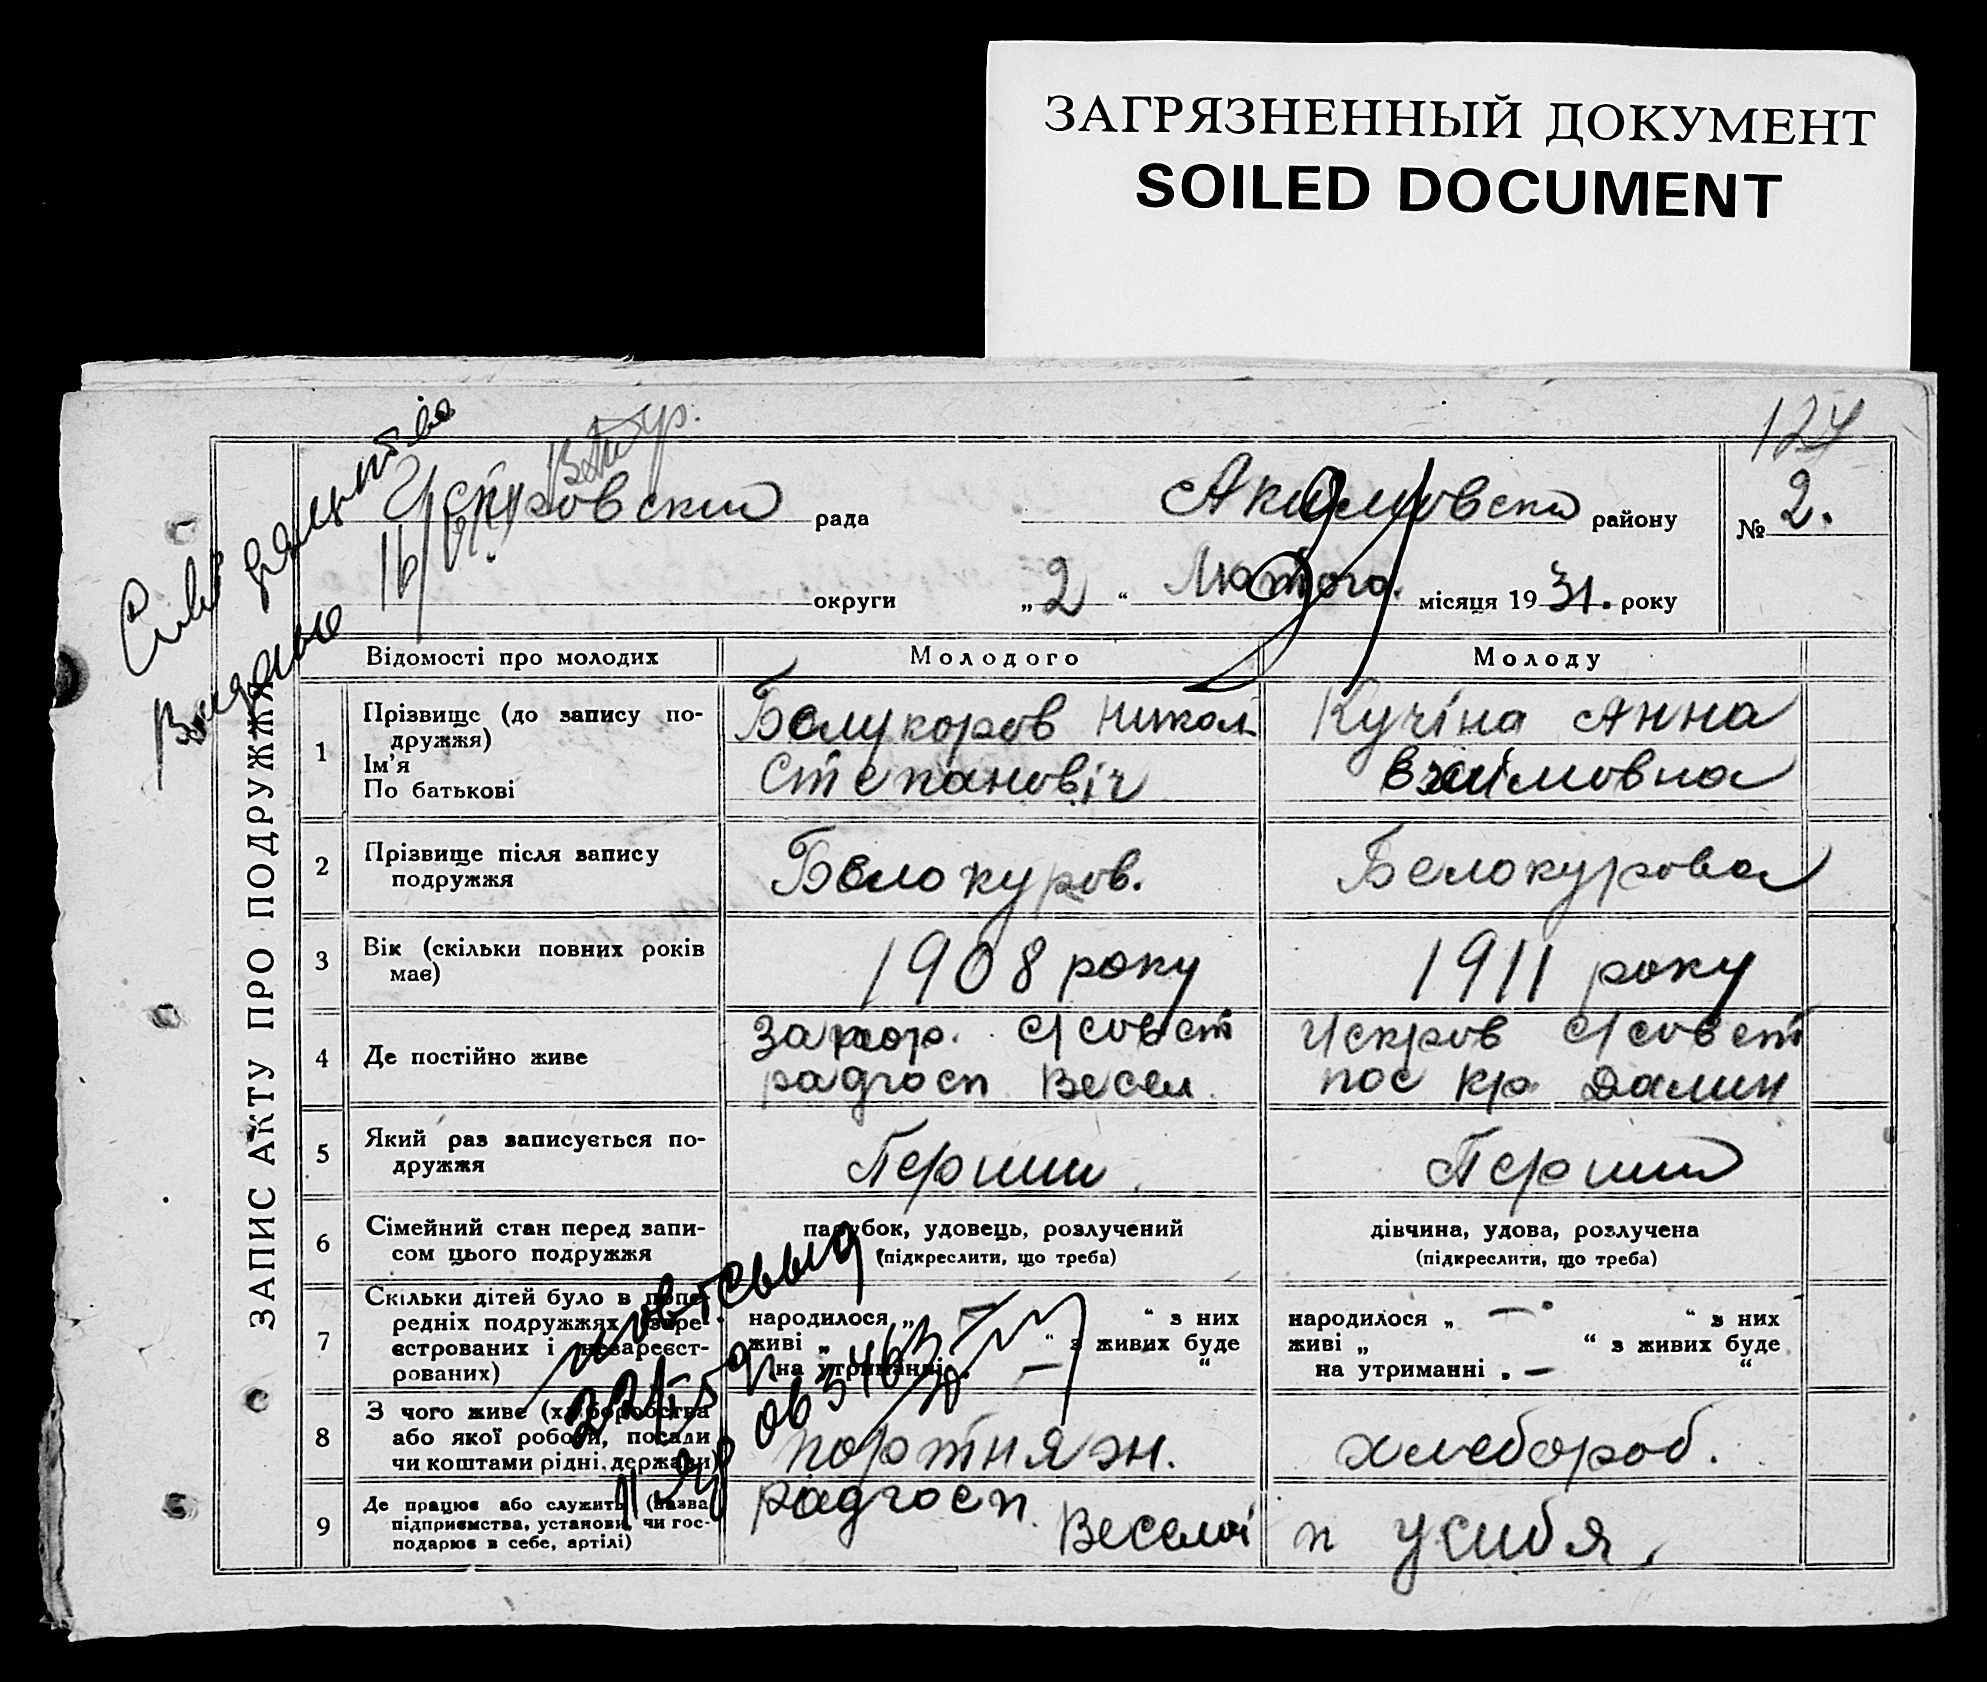 ЗАГРЯЗНЕННЫЙ ДОКУМЕНТ
SOILED DOCUMENT
124
рада
Акимовски району
№ 2.
16/VI
округи „ 2 “ Лютого. місяця 19 31. року
Видано
ЗАПИС АКТУ ПРО ПОДРУЖЖЯ
Відомості про молодих Молодого Молоду
1 Прізвище (до запису подружжя) Белукоров Никол Кучіна Анна
Ім’я
По батькові Степановіч
2 Прізвище після запису Белокуров. Белокурова
подружжя
3 Вік (скільки повних років 1908 року 1911 року
має)
4 Де постійно живе Запор. с/совет Искров с/совет
радгосп Весел. пос кр Далин
5 Який раз записується по- Перши Перший
дружжя
6 Сімейний стан перед запи- парубок, удовець, розлучений дівчина, удова, розлучена
сом цього подружжя (підкреслити, що треба) (підкреслити, що треба)
7 Скільки дітей було в попе-
редніх подружжях (заре- народилося „ — “ з них народилося „ — “ з них
єстрованих і незареєст- живі „ “ з живих буде живі „ “ з живих буде
рованих) на утриманні . — “ на утриманні . — “
8 З чого живе (хліборобства
або якої роботи, посади портняжн. хлебороб.
чи коштами рідні, держави)
9 Де працює або служить (назва радгосп.
підприємства, установи, чи гос- Веселиі п у себя.
подарює в себе, артілі)